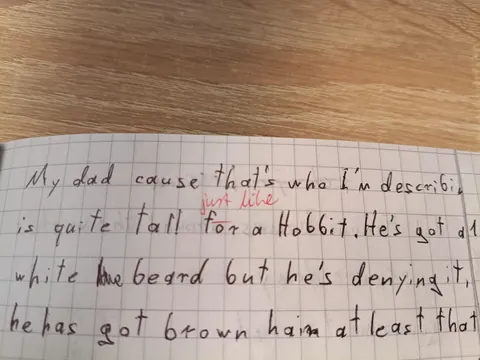 My dad cause that's who I'm describi
just like
is quite tall for a Hobbit. He's got a
white beard but he's denying it,
he has got brown hair at least that